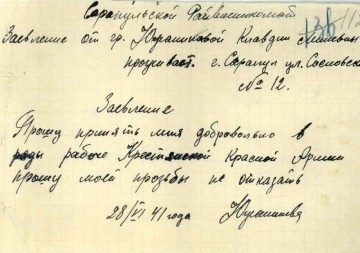 Сарапульской Райвоенкомат
Заявление от гр. Юрашковой Клавдии
проживает г. Сарапул ул.
№ 12.
Заявление
Прошу принять меня добровольно в
ряды рабоче Крестянской Красной Армии
прошу моей прозьбы не отказать
28/VI 41 года